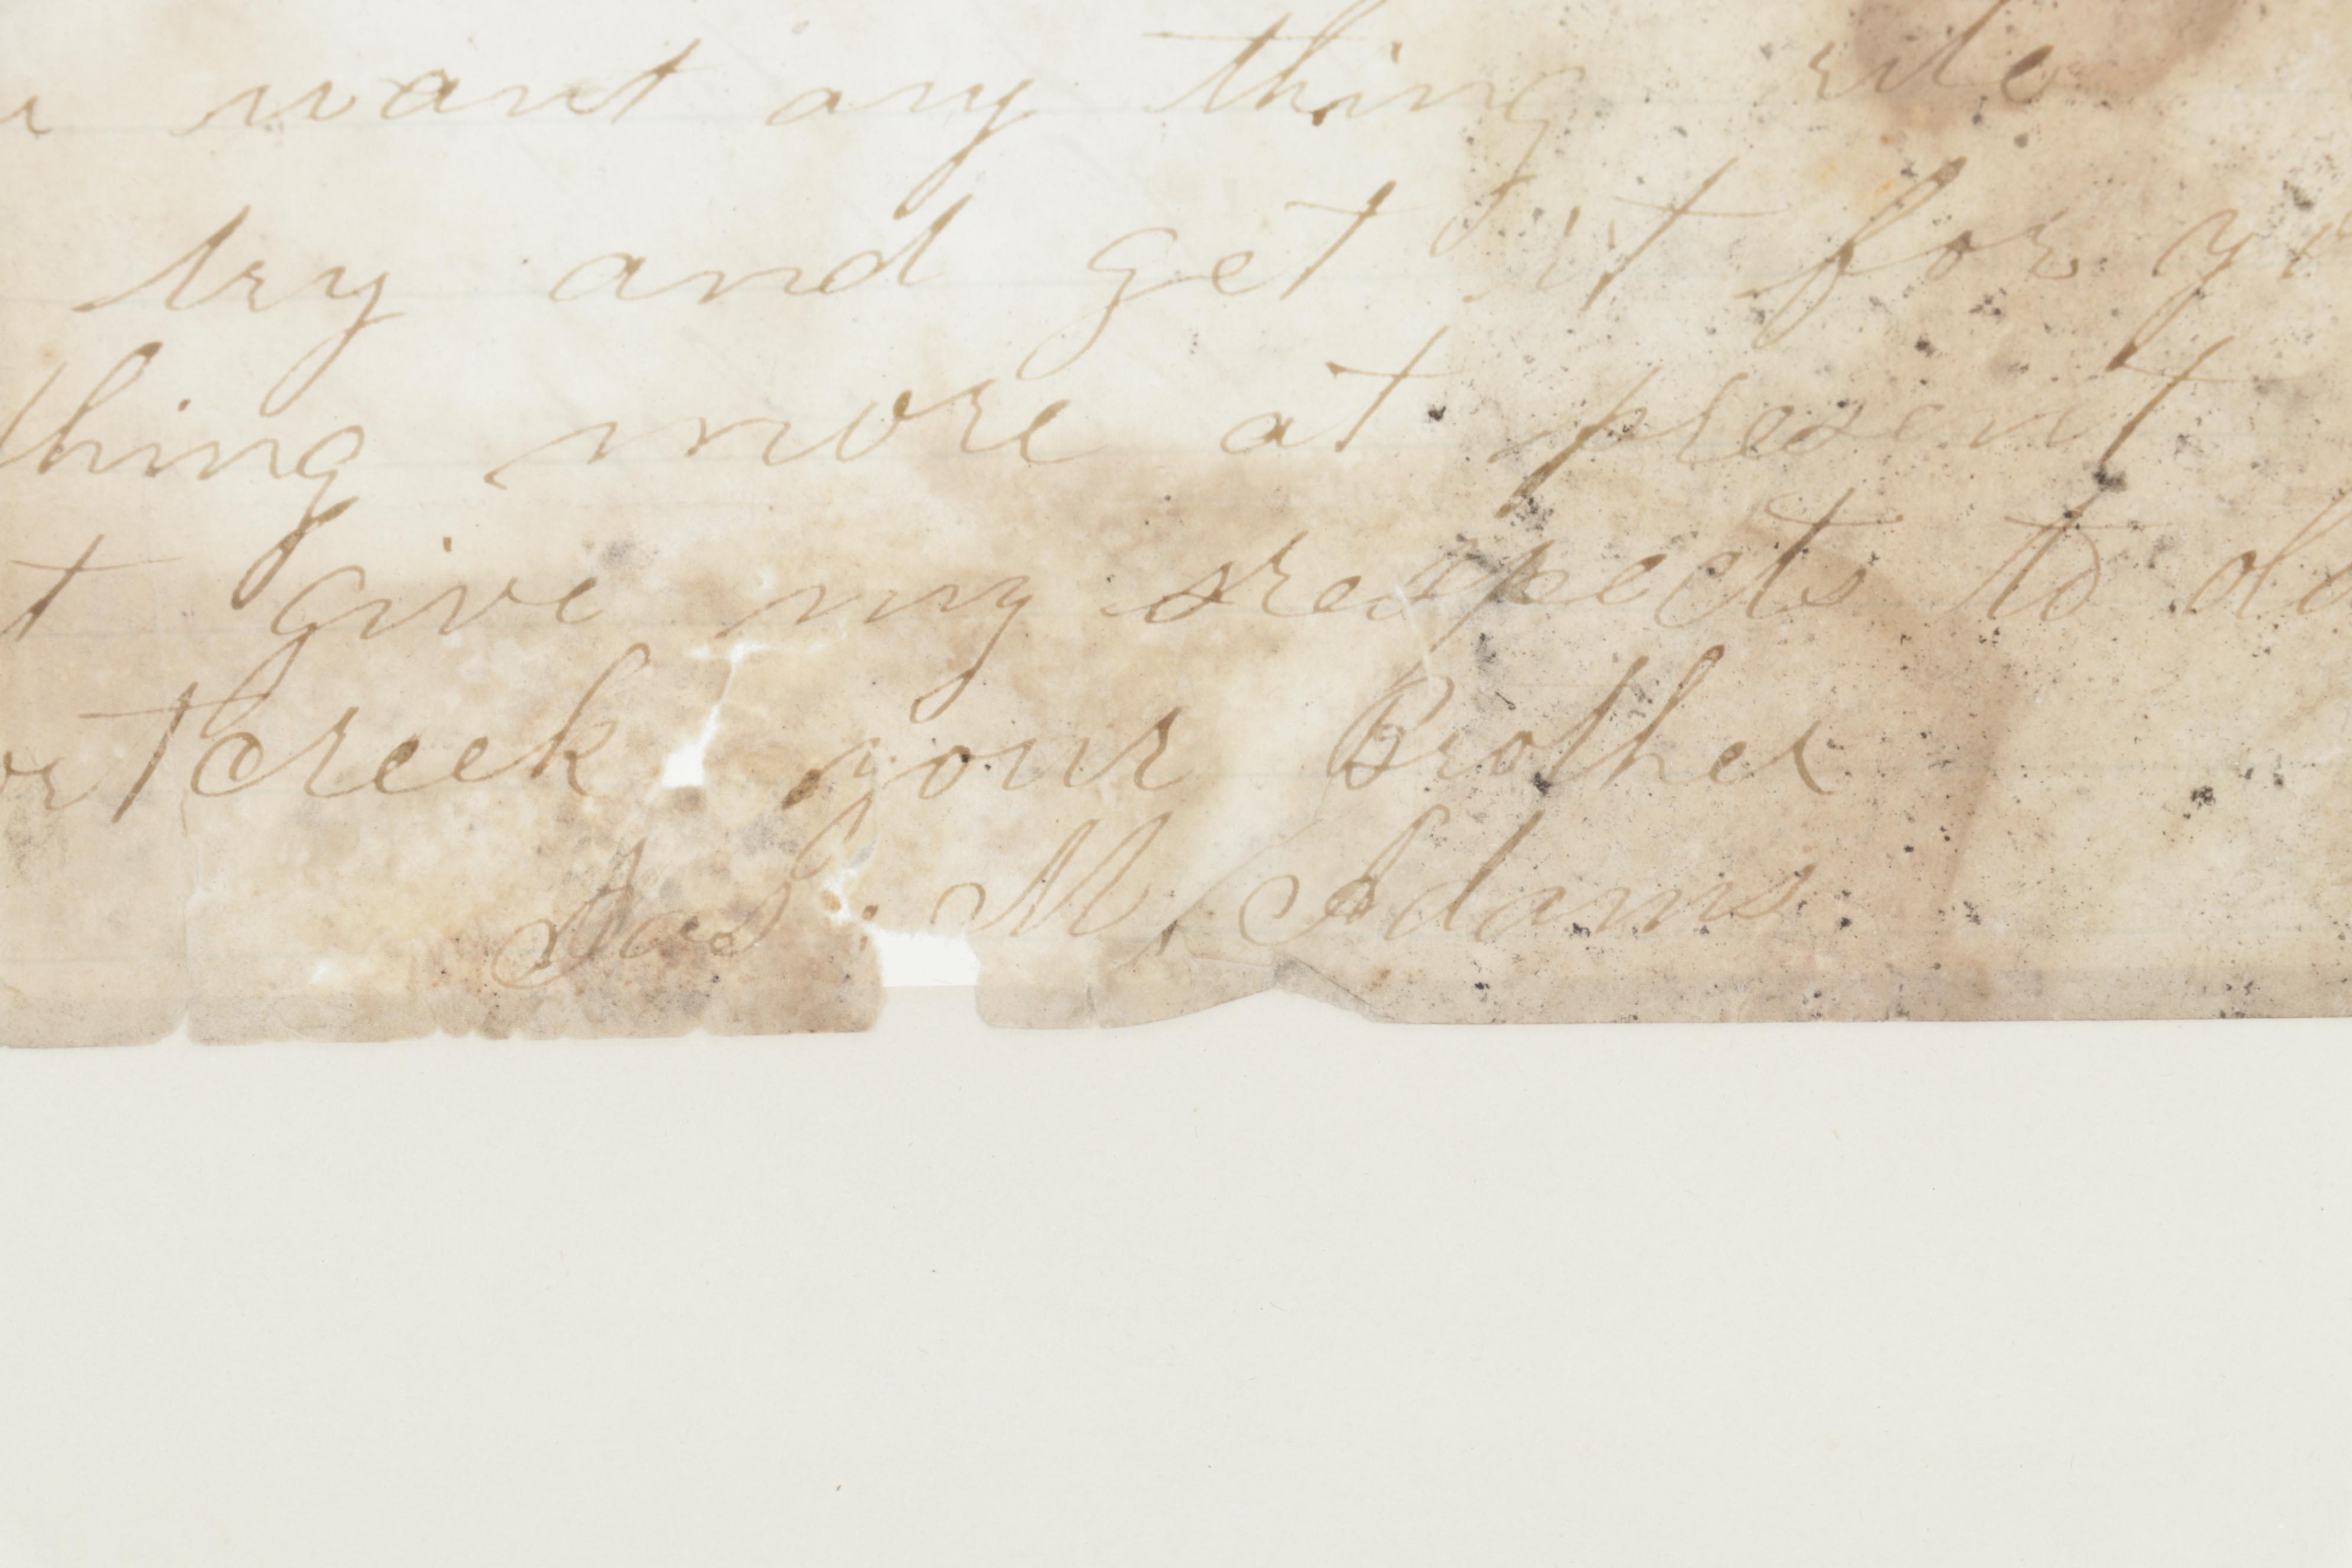 want any thing rite
try and get it for yo
thing more at present
t give my respects to old
ort creek your Brother
Jas. M. Adams